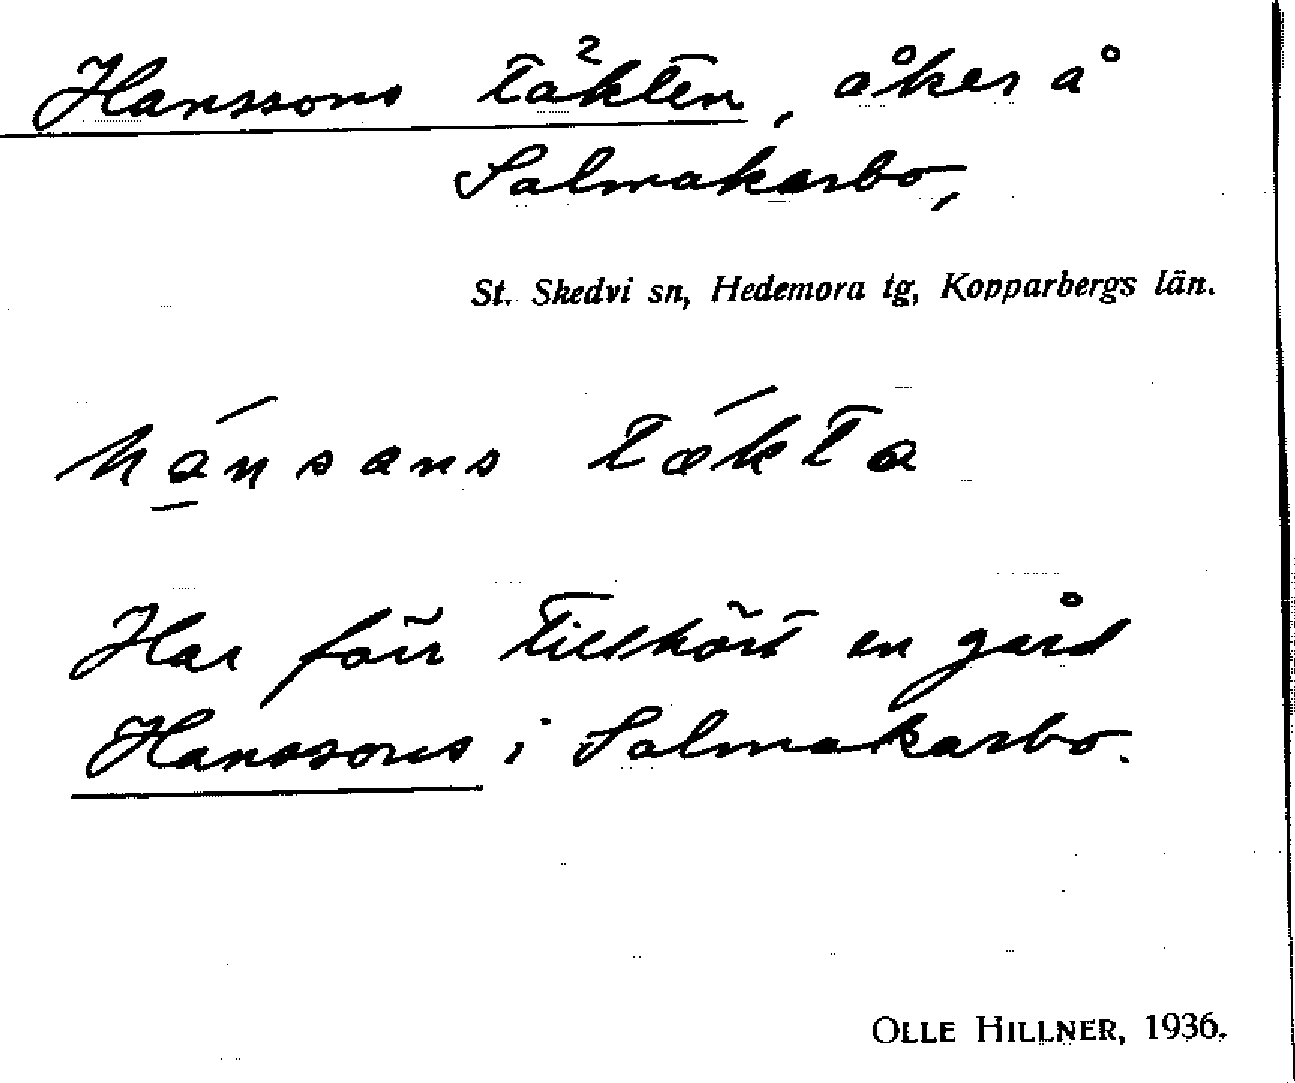 Hanssons täkten, åker å
Salmakarbo,
St. Skedvi sn, Hedemora tg, Kopparbergs län.
hánsans tǽkta
Har förr tillhört en gård
Hanssons i Salmakarbo.
OLLE HILLNER, 1936.